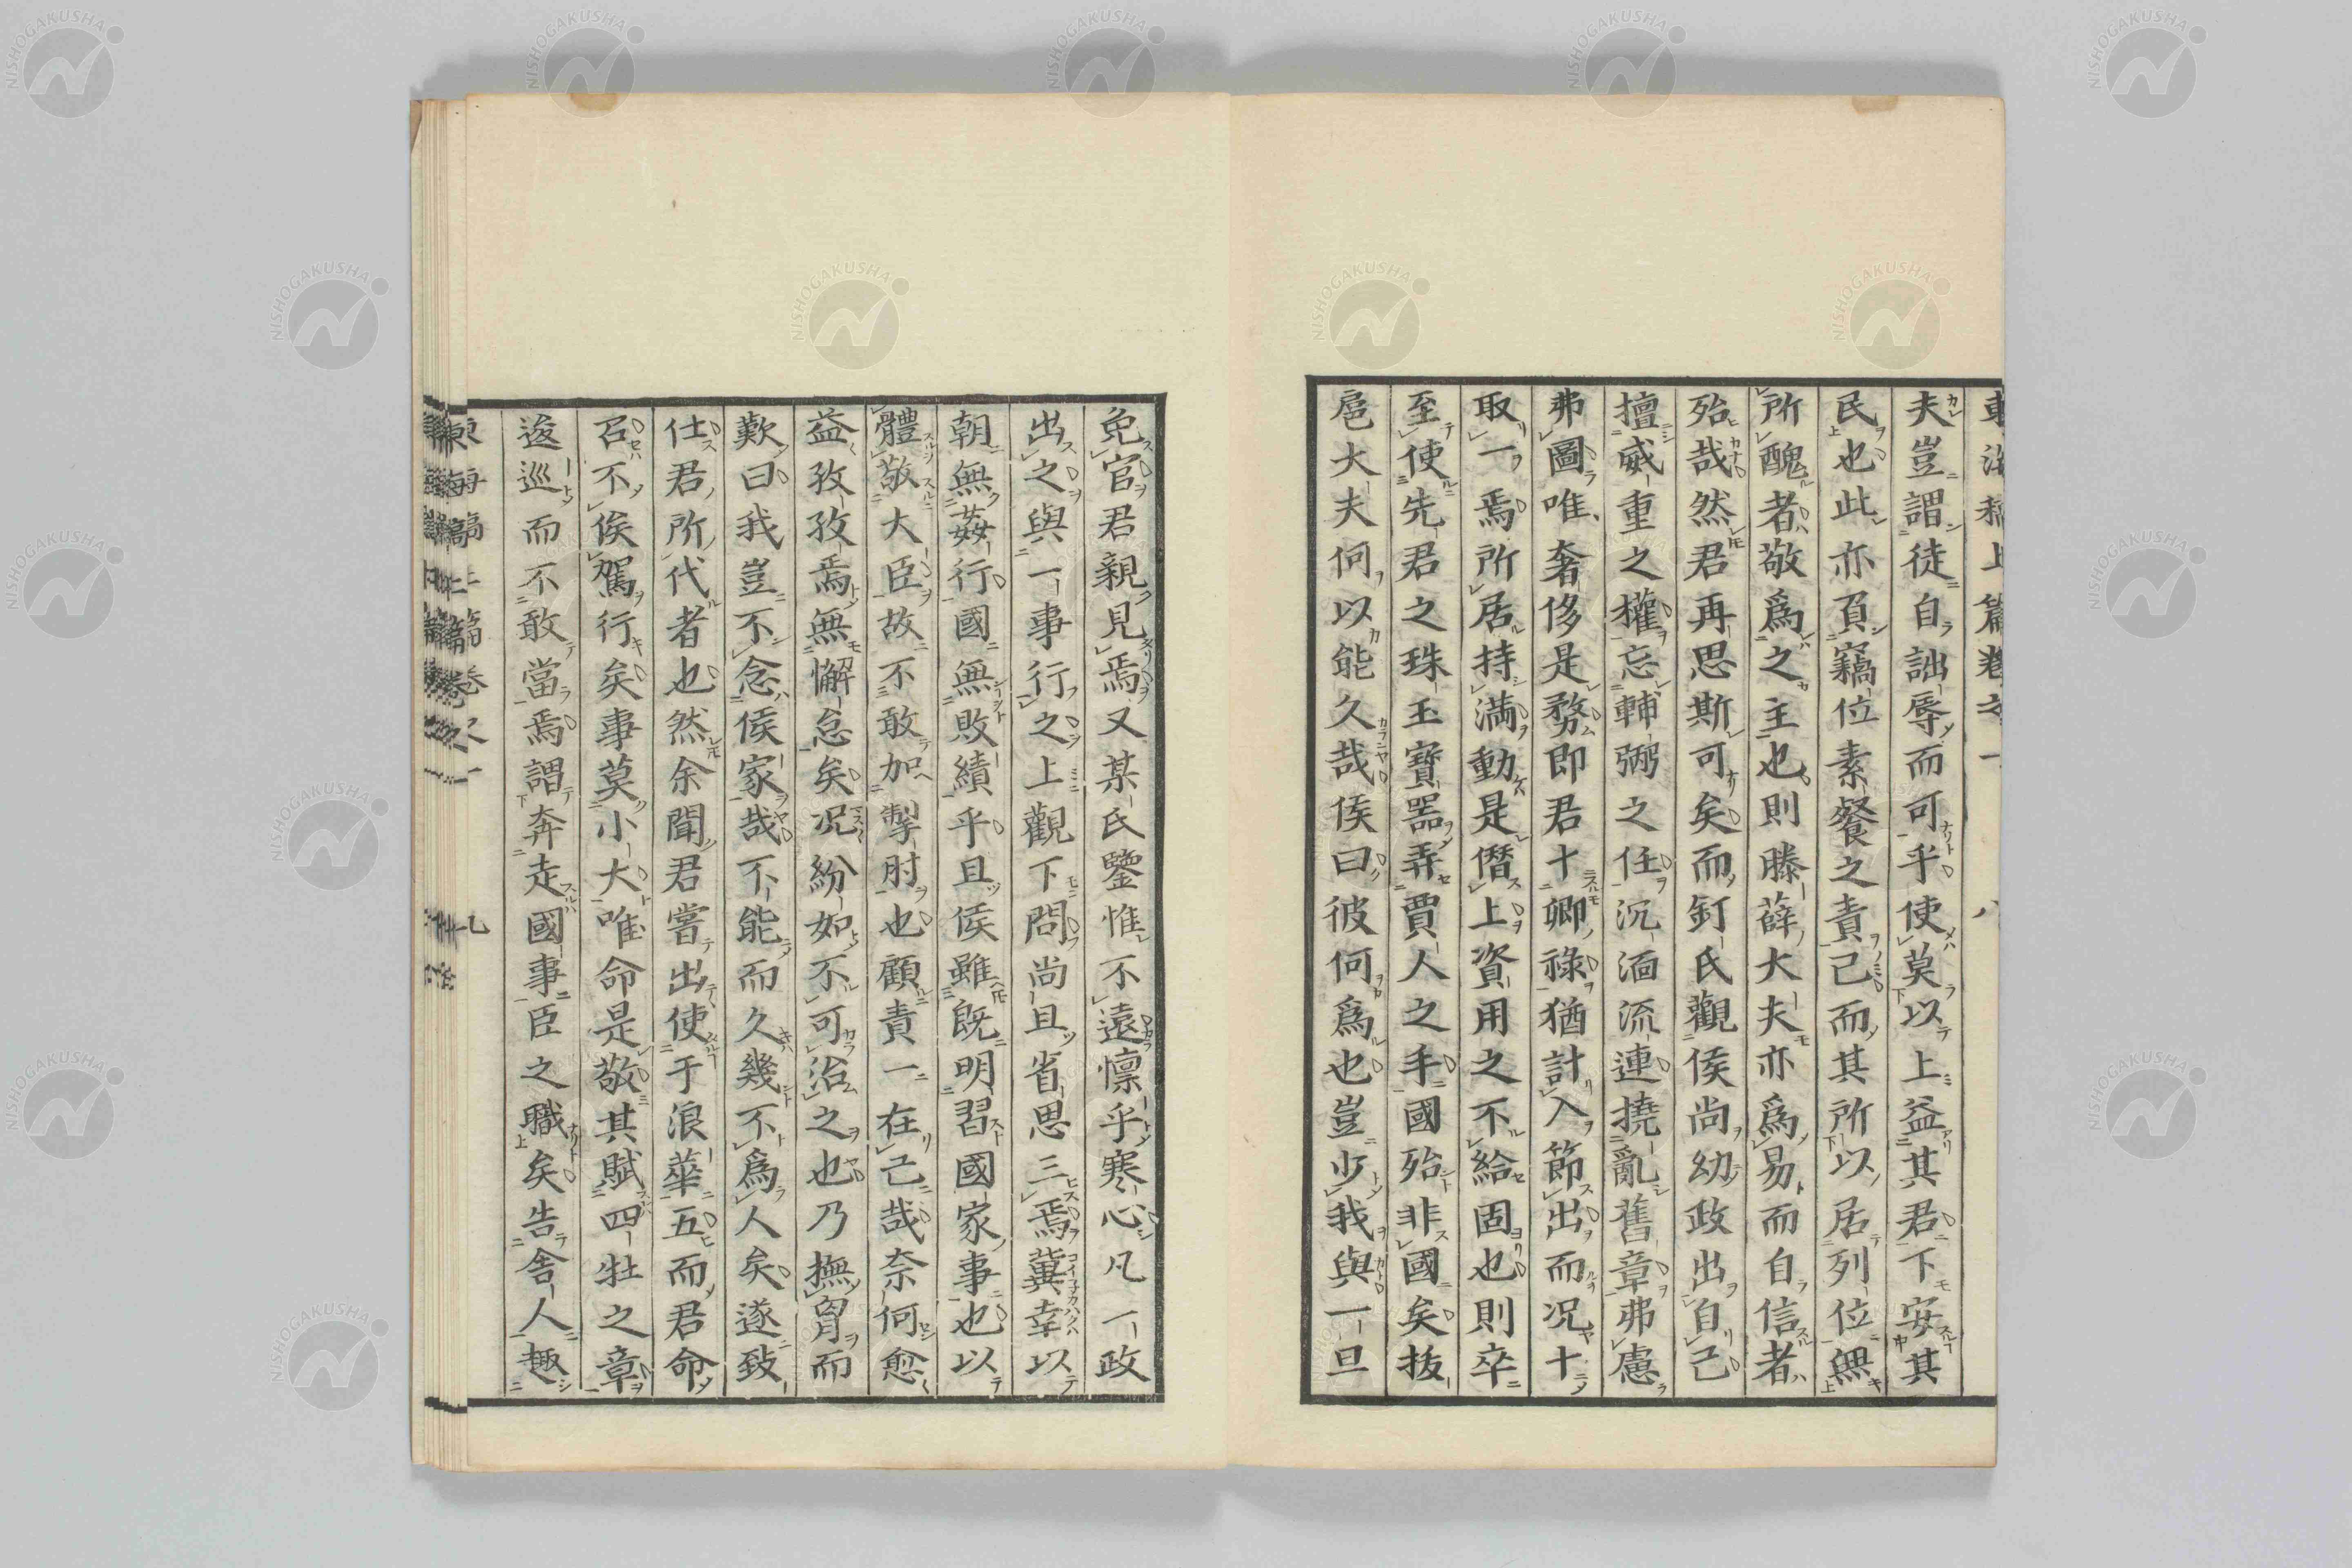 夫豈謂徒自詘辱而可乎使莫以上益其君下安其
民也此亦負竊位素餐之責己而其所以居列位無
所醜者敬爲之主也則滕薛大夫亦爲易而自信者
殆哉然君再思斯可矣而釘氏觀侯尚幼政出自己
擅威重之權忘輔弼之任沉湎流連撓亂舊章弗慮
弗圖唯奢侈是務即君十卿祿猶計入節出而況十
取一焉所居持滿動是僭上資用之不給固也則卒
至使先君之珠玉寶器弄賈人之手國殆非國矣抜
扈大夫何以能久哉侯曰彼何爲也豈少我與一旦
免官君親見焉又某氏鑒惟不遠懍乎寒心凡一政
出之與一事行之上觀下問尚且省思三焉冀幸以
朝無姦行國無敗績乎且侯雖既明習國家事也以
體敬大臣故不敢加掣肘也顧責一在己哉奈何愈
益孜孜焉無懈怠矣況紛如不可治之也乃撫胷而
歎曰我豈不念侯家哉不能而久幾不爲人矣遂致
仕君所代者也然余聞君嘗出使于浪華五而君命
召不俟駕行矣事莫小大唯命是敬其賦四牡之章
逡巡而不敢當焉謂奔走國事臣之職矣告舍人趣
東海稿上篇卷之一
九
NISHOGAKUSHA